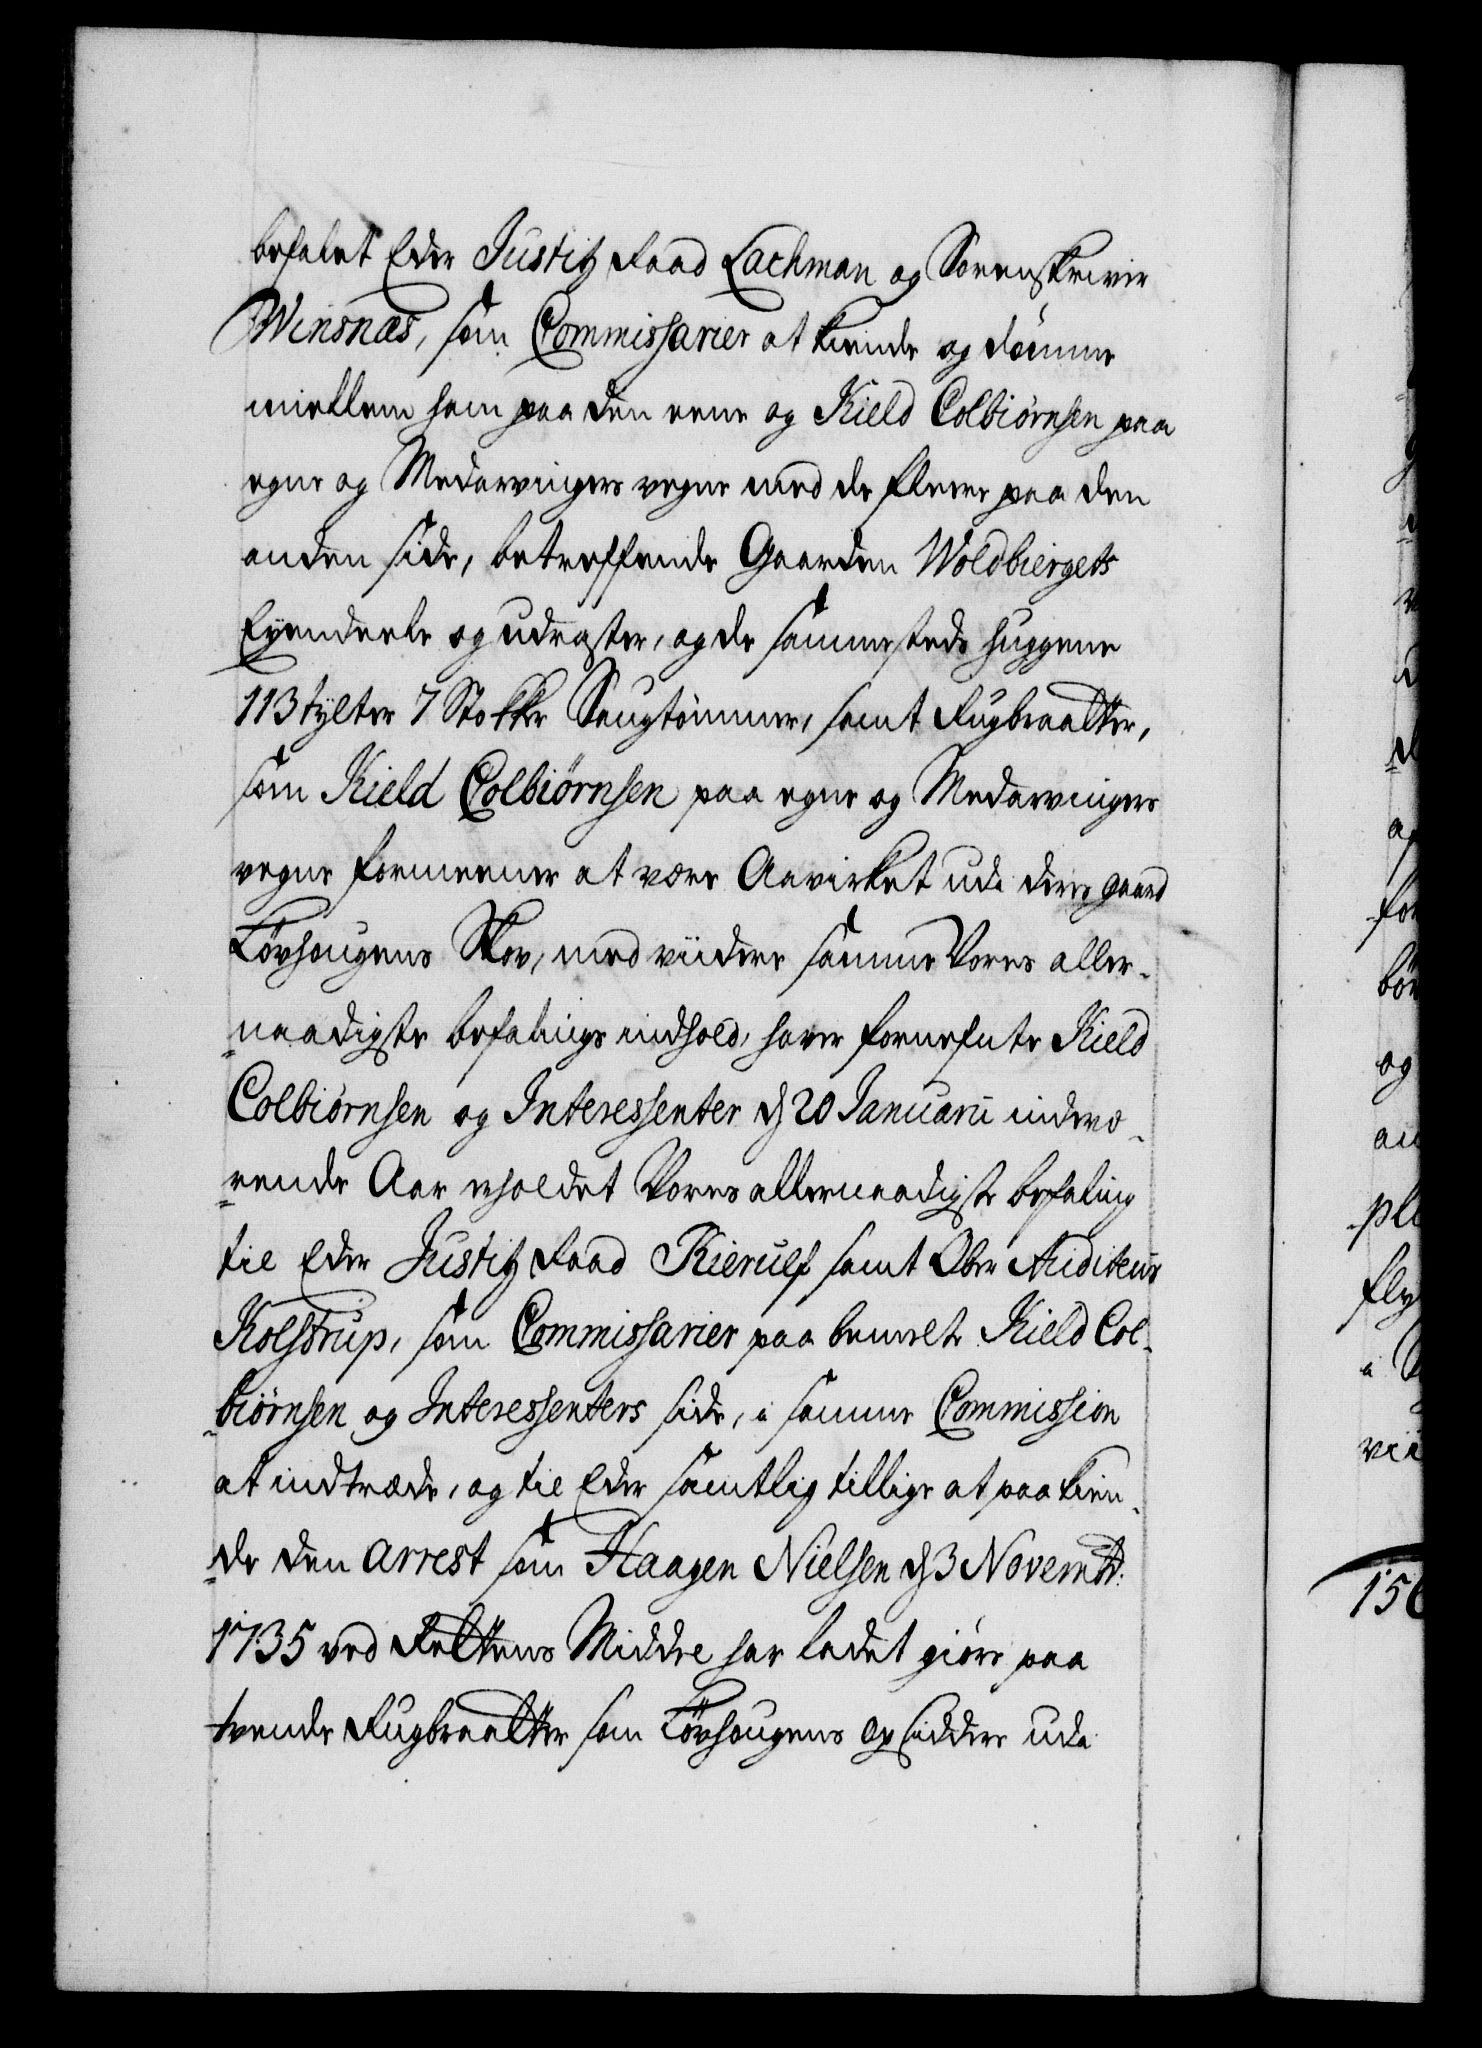 befalet Eder Justitz Raad Lachman og Sorenskriver
Winsnæs, som Commissarier at kiende og dömme
miellem ham paa den eene og Kield Colbiørnsen paa
egne og Medarvingers vegne med de fleere paa den
anden side, betreffende Gaarden Woldbiergets
Eyendeele og udraster, og de sammesteds huggene
113 tylter 7 Stokker Saugtömmer, samt Rugbraatter,
som Kield Colbiörnsen paa egne og Medarvingers
vegne formeener at være Aavirket udi deres gaard
Lövhougens Skov, med viidere samme Vores aller-
naadigste befalings indhold, haver forneunte Kield
Colbiørnsen og Interessenter d 20 Januarii indevæ-
rende Aar erholdet Vores allernaadigste befaling
til Eder Justitz Raad Kierulf samt Ober Auditeur
Kolstrup, som Commissarier paa bemelte Kield Col-
biørnsen og Interessenters side, i samme Commission
at indtræde, og til Eder samtlig tillige at paakien-
de den arrest som Haagen Nielsen d 3 Novembr:
1735 ved Rettens Middel har ladet giöre paa
tvende Rugbraatter som Lövhougens opsiddere udi